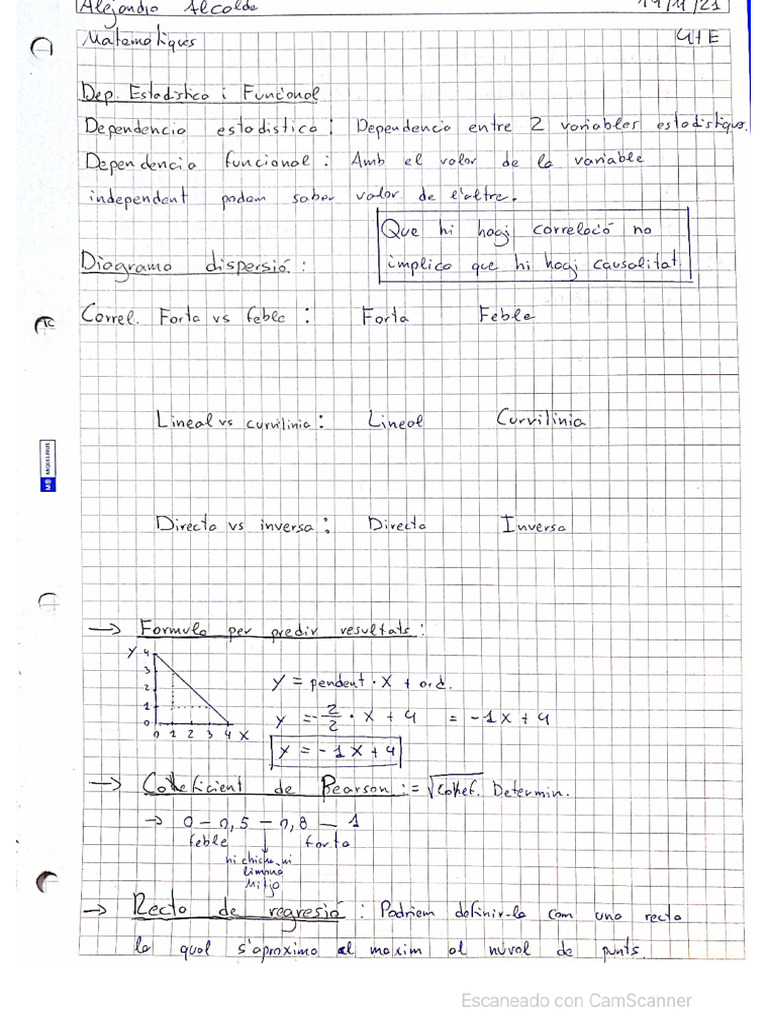 Alejandro Alcalde 19/11/21
Matematiques 4t E
Dep. Estadistica i Funcional
Dependencia estadistica: Dependencia entre 2 variables estadistiques.
Dependencia funcional: Amb el valor de la variable
independent podem saber valor de l'altre.
Que hi hagi correlació no
implica que hi hagi causalitat.
Diagrama dispersió:
TC
Correl. Forta vs feble: Forta Feble
Lineal vs curvilinia: Lineal Curvilinia
MIQUELRIUS
Directa vs inversa: Directa Inversa
→ Formula per predir resultats:
Y 4 3 2 1 0
0 1 2 3 4 X
y = pendent · x + ord.
y = -2/2 · x + 4 = -1x + 4
y = -1x + 4
→ Coeficient de Pearson: = √Coef. Determin.
→ 0 - 0,5 - 0,8 - 1
feble forta
ni chicha ni
limona
mitja
→ Recta de regresió: Podriem definir-la com una recta
la qual s'aproxima al maxim al núvol de punts.
Escaneado con CamScanner